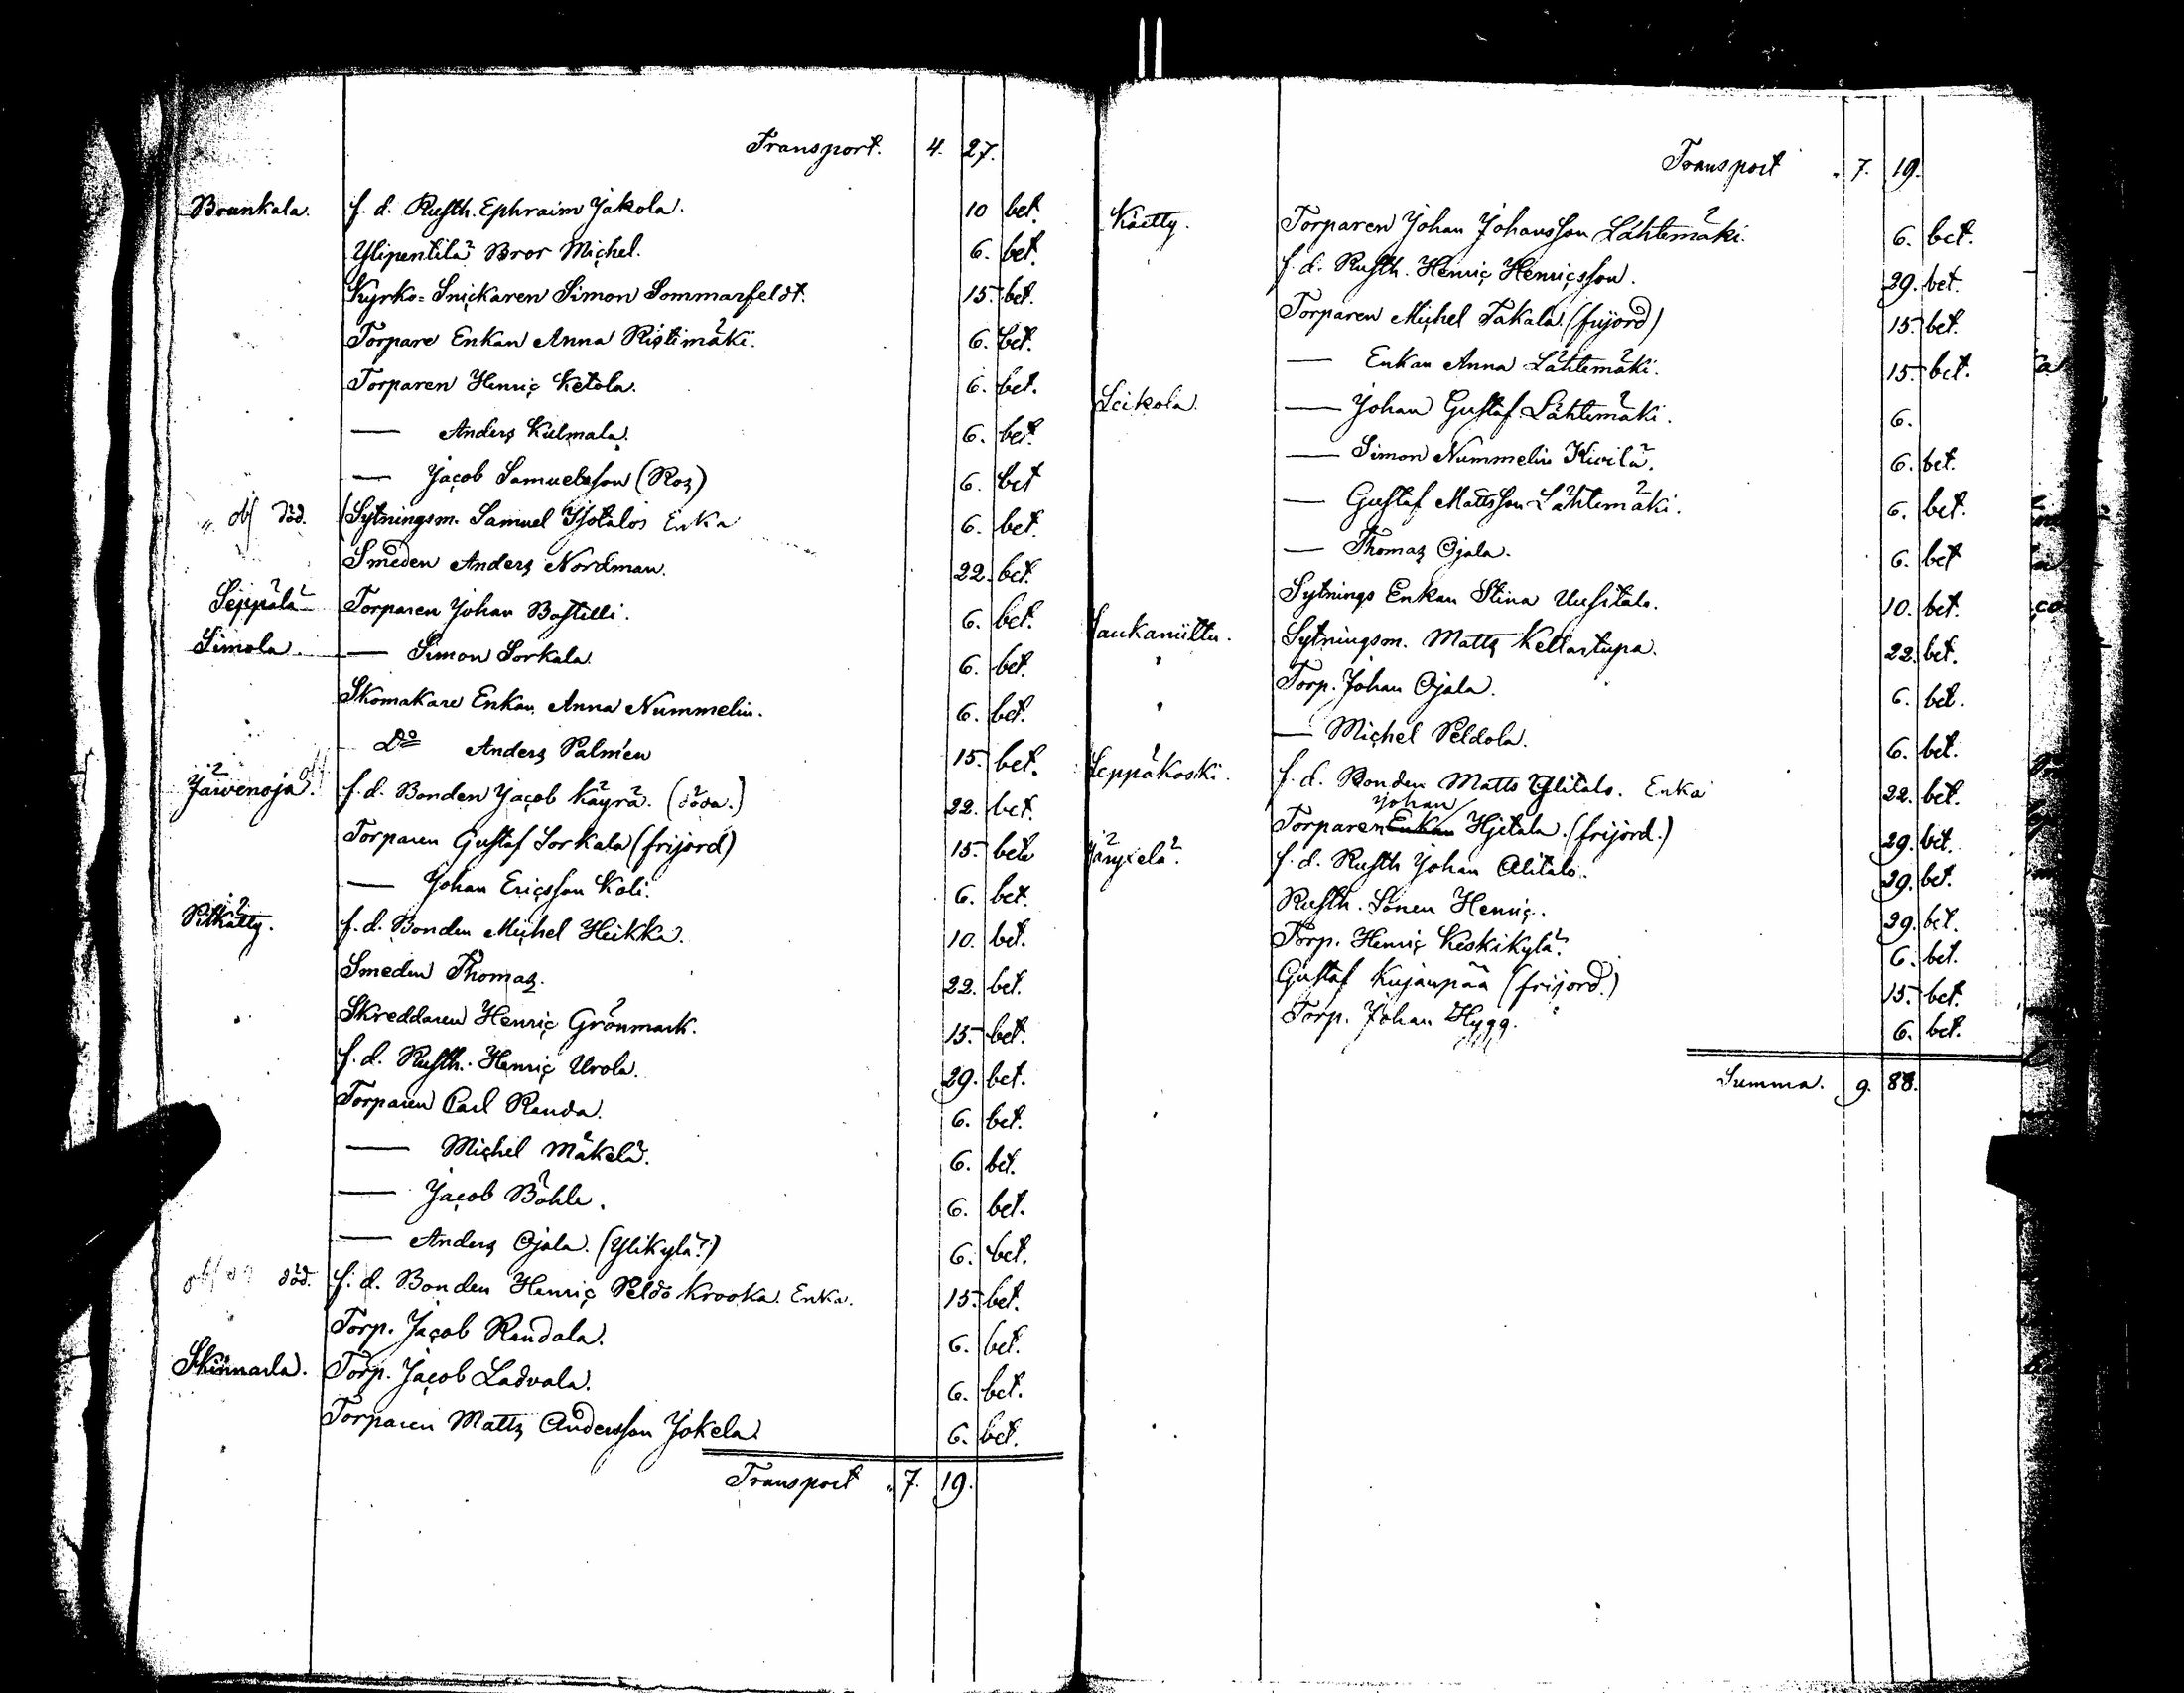 Transport. 4. 27.
Brunkala. f. d. Rusth. Ephraim Jakola. 10 bet.
Ylipentilä Bror Michel. 6. bet.
Kyrko-Snickaren Simon Sommarfeldt. 15. bet.
Torpare Enkan Anna Ristimäki. 6. bet.
Torparen Henric Ketola. 6. bet.
— Anders Kulmala. 6. bet.
— Jacob Samuelsson (Ros) 6. bet
död. Sytningsm. Samuel Isotalos Enka 6. bet.
Smeden Anders Nordman. 22. bet.
Seppälä Torparen Johan Bostilli. 6. bet.
Simola. — Simon Sorkala. 6. bet.
Skomakare Enkan Anna Nummelin. 6. bet.
Do Anders Palmén 15. bet.
Järvenoja. f. d. Bonden Jacob Käyrä. (döda.) 22. bet.
Torparen Gustaf Sorkala (frijord) 15. bet.
— Johan Ericsson Koli. 6. bet.
Pitkätty. f. d. Bonden Michel Heikka. 10. bet.
Smeden Thomas. 22. bet.
Skreddaren Henric Grönmark. 15. bet.
f. d. Rusth. Henric Urola. 29. bet.
Torparen Carl Randa. 6. bet.
— Michel Mäkelä. 6. bet.
— Jacob Böhle. 6. bet.
— Anders Ojala. (Ylikylä.) 6. bet.
död. f. d. Bonden Henric Peldo Krooka. Enka. 15. bet.
Torp. Jacob Randala. 6. bet.
Skinnarla. Torp. Jacob Ladvala. 6. bet.
Torparen Matts Andersson Jokela. 6. bet.
Transport 7. 19.
Transport 7. 19.
Käetty. Torparen Johan Johansson Lähtemäki. 6. bet.
f. d. Rusth. Henric Henricsson. 29. bet.
Torparen Michel Takala. (frijord) 15. bet.
— Enkan Anna Lähtemäki. 15. bet.
Leikola. — Johan Gustaf Lähtemäki. 6.
— Simon Nummelin Kivilä. 6. bet.
— Gustaf Mattsson Lähtemäki. 6. bet.
— Thomas Ojala. 6. bet
Sytnings Enkan Stina Uusitalo. 10. bet.
Saukaniittu. Sytningsm. Matts Kellartupa. 22. bet.
Torp. Johan Ojala. 6. bet.
— Michel Peldola. 6. bet.
Leppäkoski. f. d. Bonden Matts Ylitalo. Enka 22. bet.
Johan
Torparen Enkan Hjitala. (frijord.) 29. bet.
f. d. Rusth Johan Alitalo. 29. bet.
Rusth. Sonen Henric. 29. bet.
Torp. Henric Keskikylä. 6. bet.
Gustaf Kujanpää (frijord.) 15. bet.
Torp. Johan Hygg. 6. bet.
Summa. 9. 88.